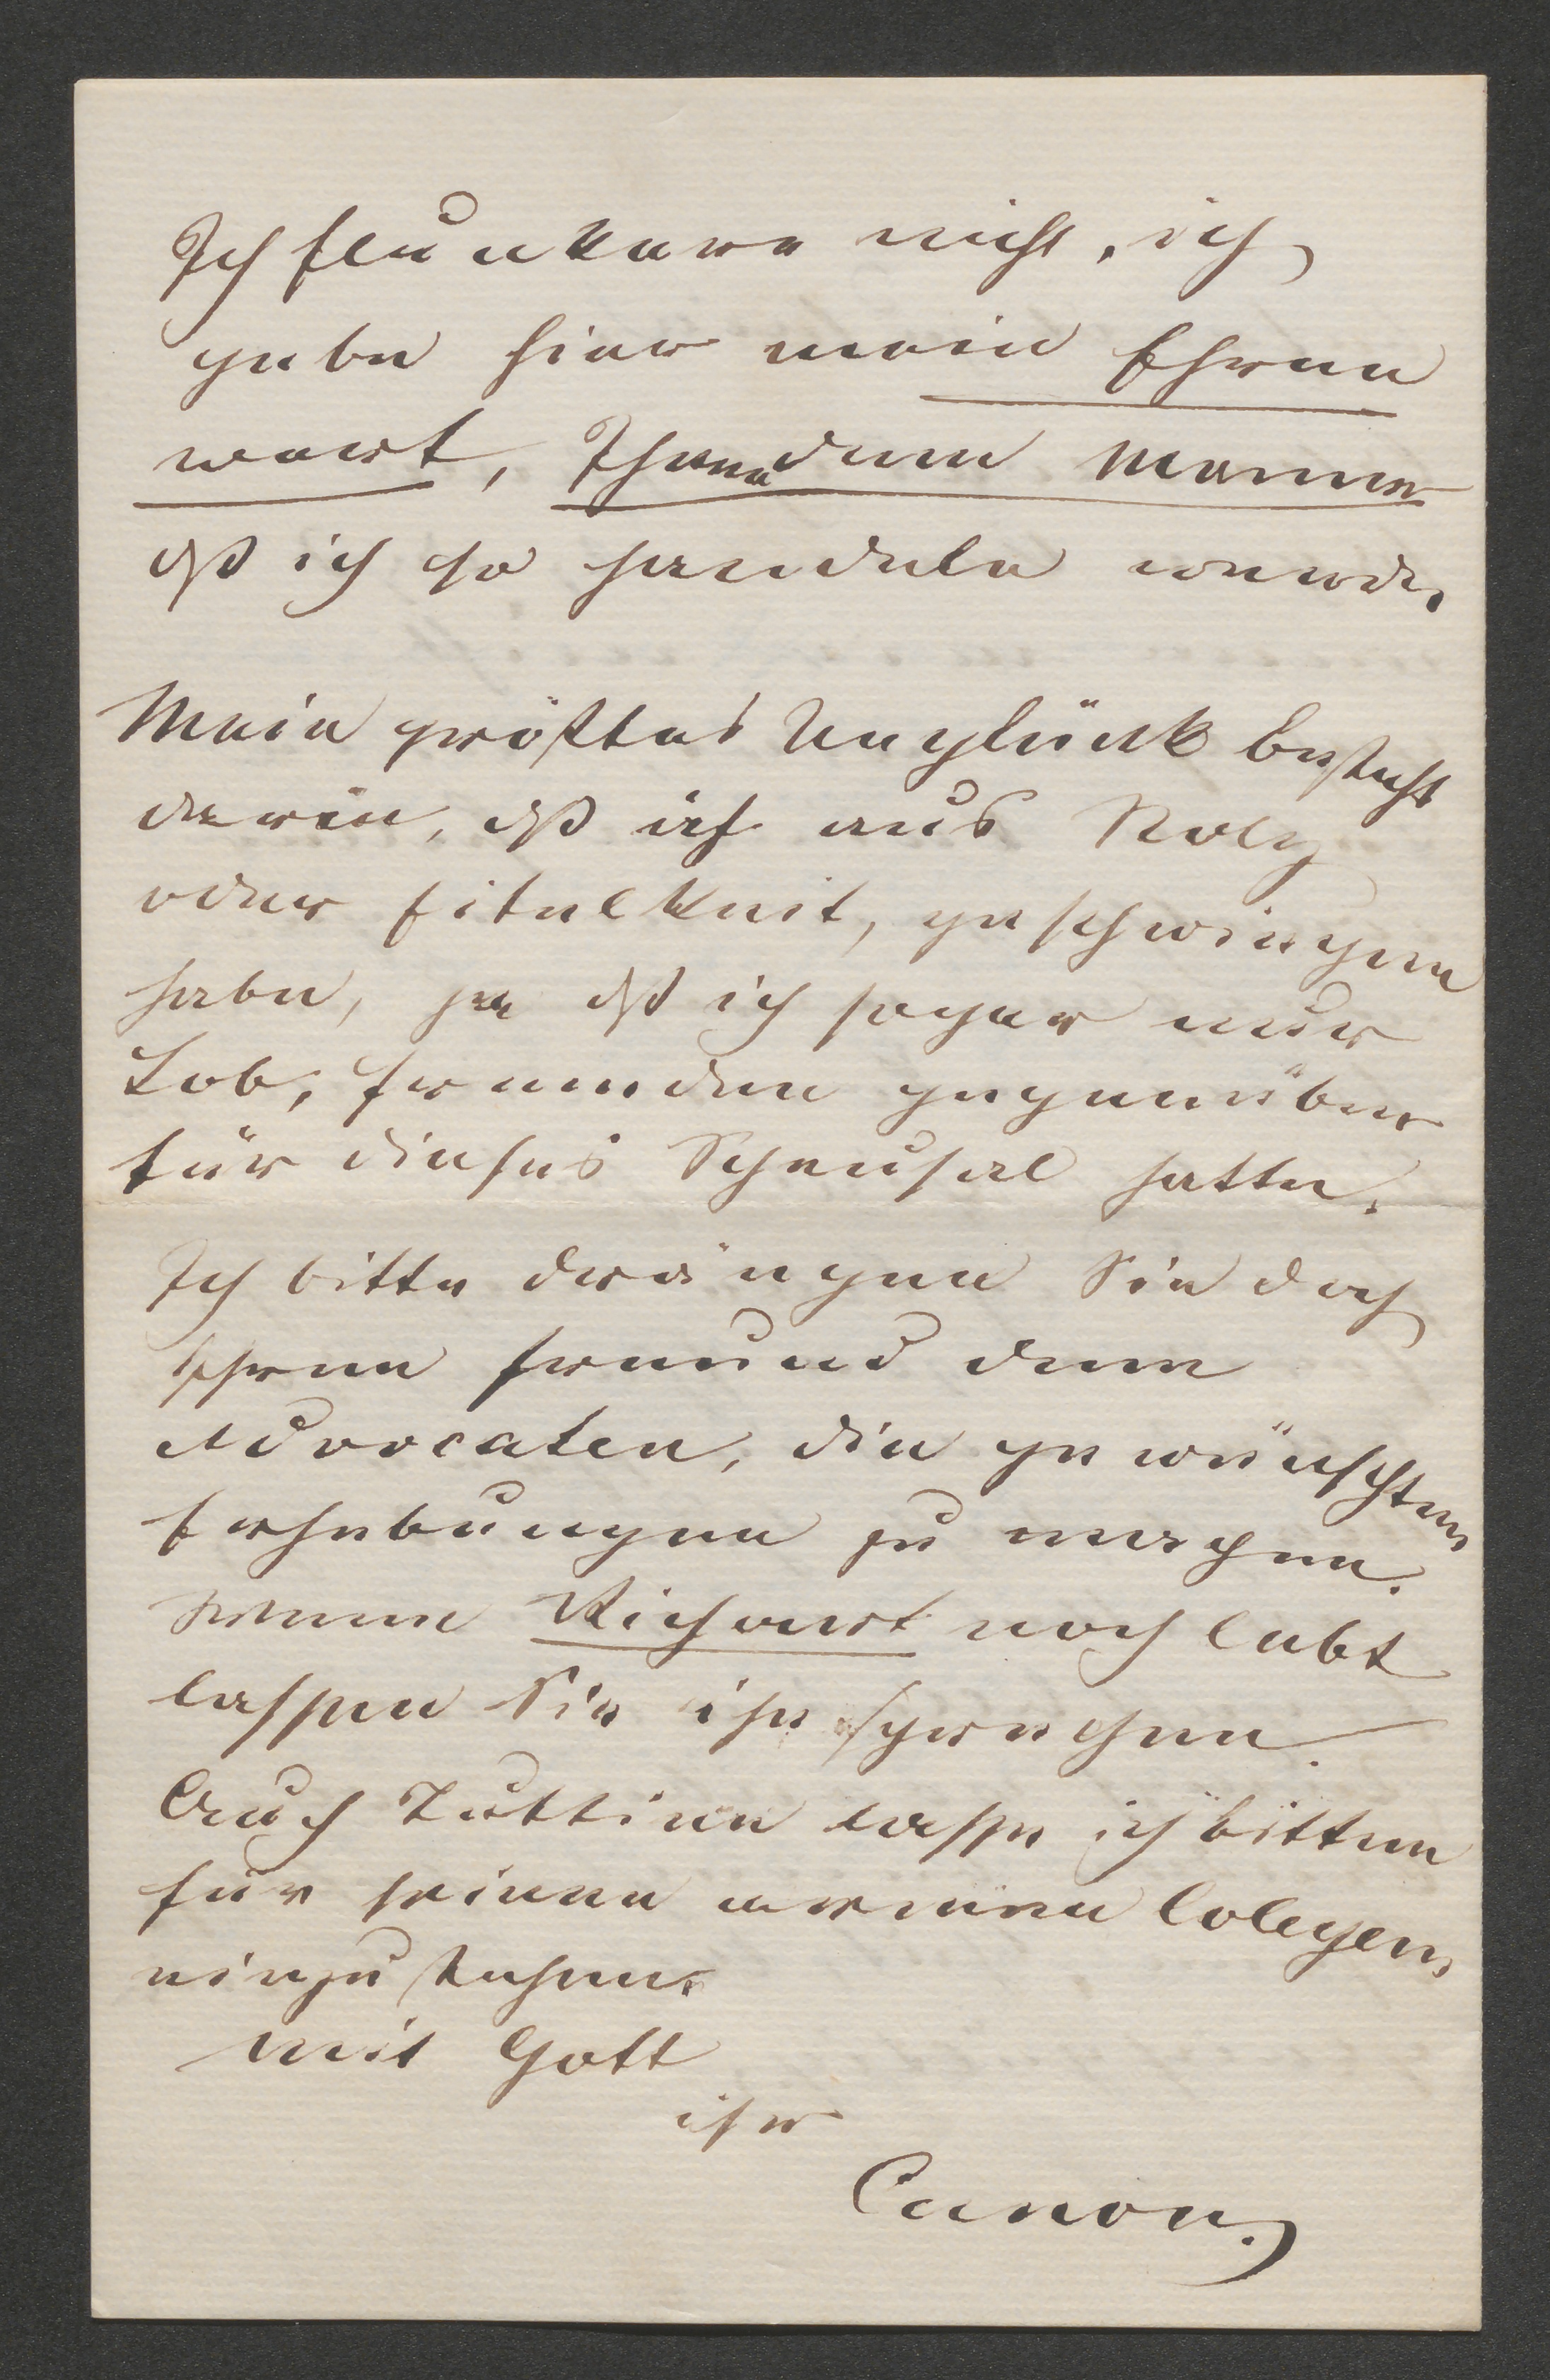 Ich flunkere nicht, ich
gebe hier mein Ehren
wort, Ihnen dem Manne
dß ich so handele werde.
Mein größtes Unglück besteht
darin, dß ich aus Stolz
oder Eitelkeit, geschwiegen
habe, ja dß ich sogar nur
Lob, fremden gegenüber
für dieses Scheusal hatte.
Ich bitte drängen Sie doch
Ihren freund dem
Advocaten, die gewünschten
Erhebungen zu machen.
wenn noch lebt
lassen Sie ihn sprechen.
Auch lasse ich bitten
für seinen armen Colegen,
einzustehen.
mit Gott
ihr
Canon.